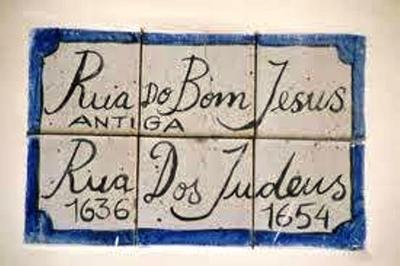 Rua Do Bom Jesus
ANTIGA
Rua Dos Judeus
1636 1654